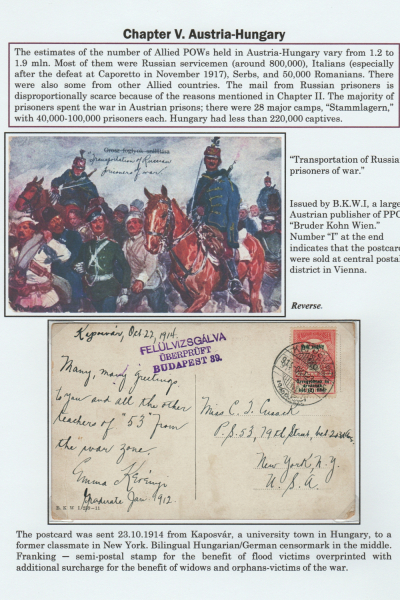 Chapter V. Austria-Hungary
The estimates of the number of Allied POWs held in Austria-Hungary vary from 1.2 to
1.9 mln. Most of them were Russian servicemen (around 800,000), Italians (especially
after the defeat at Caporetto in November 1917), Serbs, and 50,000 Romanians. There
were also some from other Allied countries. The mail from Russian prisoners is
disproportionally scarce because of the reasons mentioned in Chapter II. The majority of
prisoners spent the war in Austrian prisons; there were 28 major camps, "Stammlagern,"
with 40,000-100,000 prisoners each. Hungary had less than 220,000 captives.
Orosz foglyok szállítása
"Transportation of Russian
prisoners of war"
"Transportation of Russia
prisoners of war."
Issued by B.K.W.I, a large
Austrian publisher of PPC
"Bruder Kohn Wien."
Number "I" at the end
indicates that the postcard
were sold at central postal
district in Vienna.
Reverse.
Kaposvár, Oct 27, 1914.
FELÜLVIZSGÁLVA
ÜBERPRÜFT
BUDAPEST 39.
Many, many greetings
to you and all the other
teachers of "53" from
the "war zone.
Emma
Graduate Jan. 1912.
Miss C. I. Cusack
P.S. 53, 79th Street,
New York, N.Y.
U. S. A.
B. K. W. I.
The postcard was sent 23.10.1914 from Kaposvár, a university town in Hungary, to
a former classmate in New York. Bilingual Hungarian/German censormark in the middle.
Franking — semi-postal stamp for the benefit of flood victims overprinted with
additional surcharge for the benefit of widows and orphans-victims of the war.